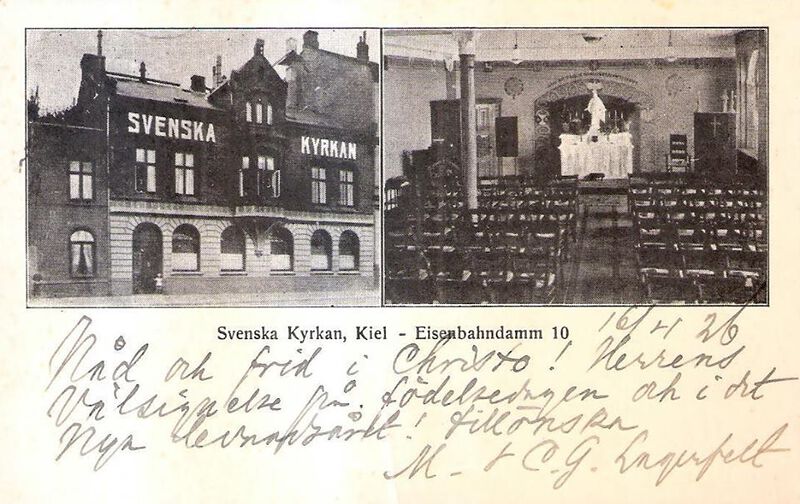 SVENSKA
KYRKAN
Svenska Kyrkan, Kiel - Eisenbahndamm 10
16/4 26
Nåd och frid i Christo! Herrens
Välsignelse på födelsedagen och i det
Nya levnadsåret! tillönska
M. & C.G. Lagerfelt